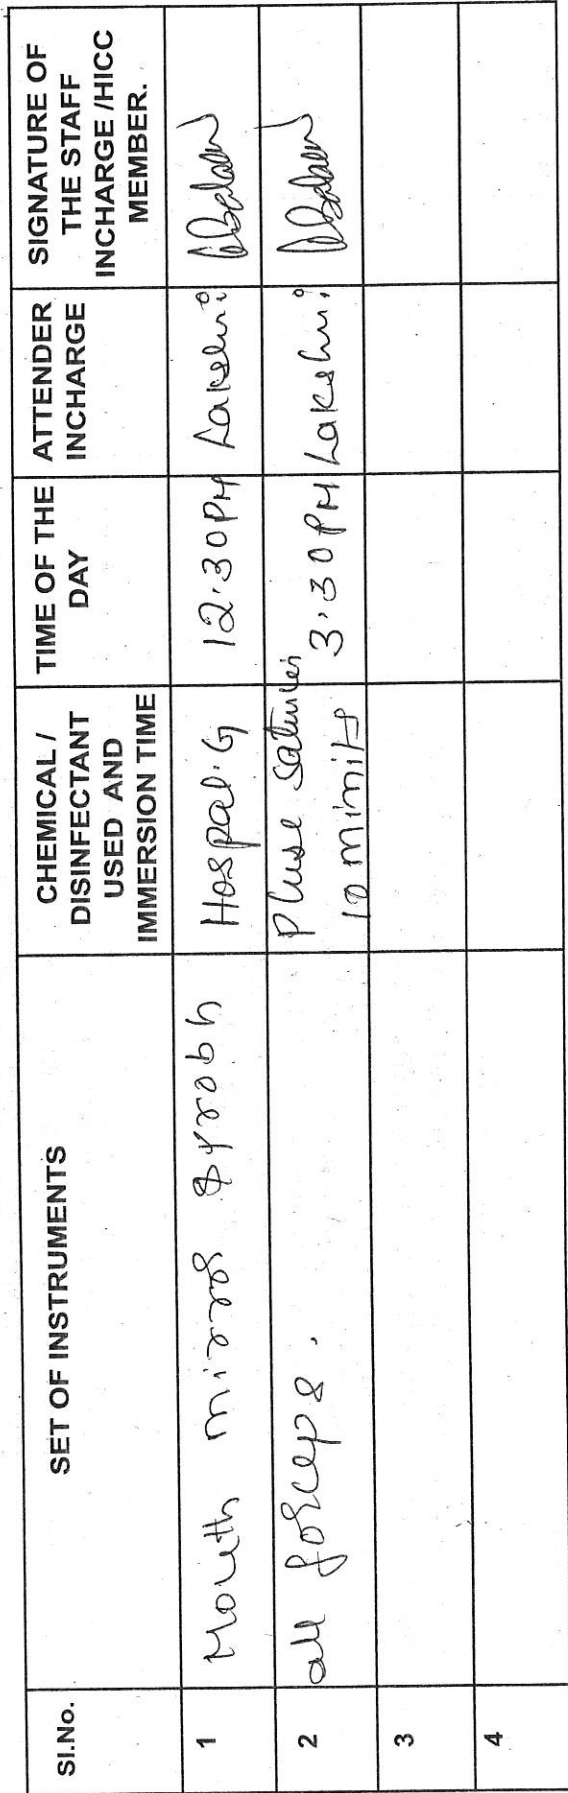 SI.No.
SET OF INSTRUMENTS
CHEMICAL /
DISINFECTANT
USED AND
IMMERSION TIME
TIME OF THE
DAY
ATTENDER
INCHARGE
SIGNATURE OF
THE STAFF
INCHARGE /HICC
MEMBER.
1
Mouth mirror
Hospal.G
12.30PM
Lakshmi
2
all forceps.
Pluse
10 minits
3.30PM
Lakshmi
3
4